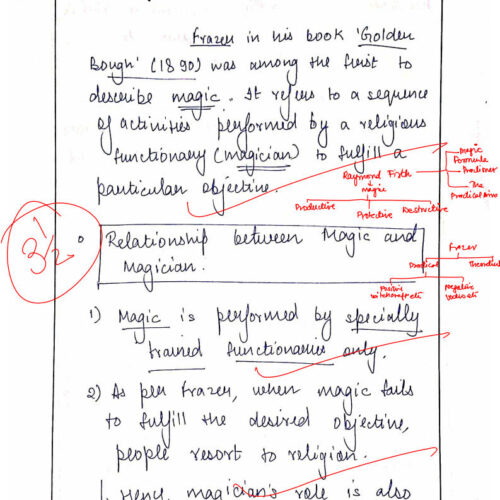 Frazer in his book 'Golden
Bough' (1890) was among the first to
describe magic. It refers to a sequence
of activities performed by a religious
functionary (magician) to fulfill a
particular objective.
Raymond Firth
magic
Productive
Protective
Destructive
Magic
Formula
The
3 1/2
Relationship between Magic and
Magician.
Frazer
Practical
Theoretical
Positive
Negative
1) Magic is performed by specially
trained functionaries only.
2) As per Frazer, when magic fails
to fulfill the desired objective,
people resort to religion.
Hence magician's role is also